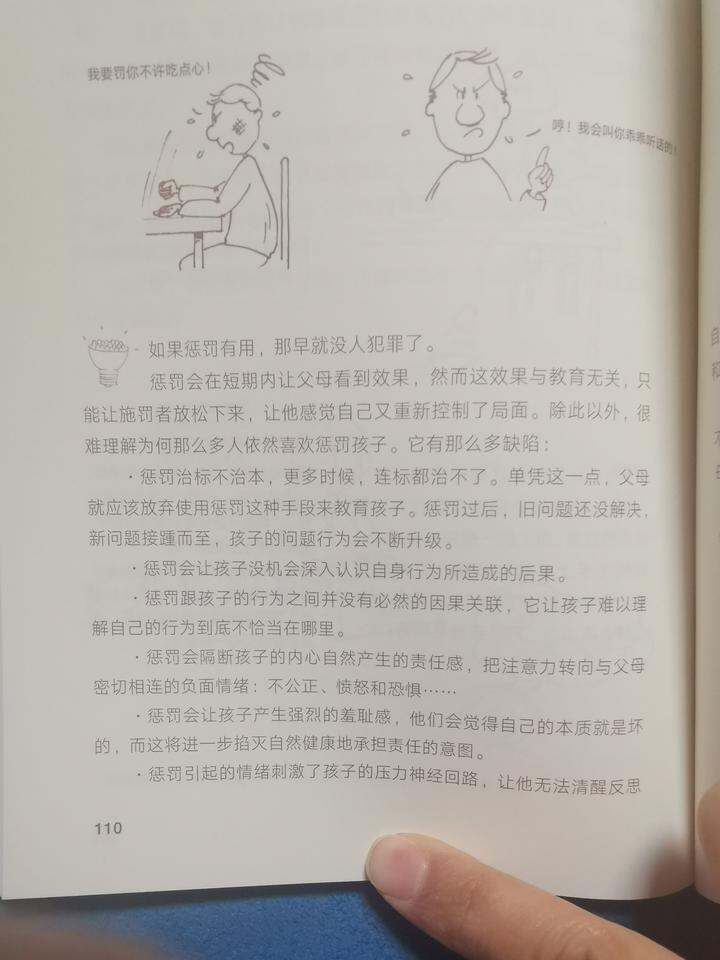 我要罚你不许吃点心！
哼！我会叫你乖乖听话的！
如果惩罚有用，那早就没人犯罪了。
惩罚会在短期内让父母看到效果，然而这效果与教育无关，只
能让施罚者放松下来，让他感觉自己又重新控制了局面。除此以外，很
难理解为何那么多人依然喜欢惩罚孩子。它有那么多缺陷：
·惩罚治标不治本，更多时候，连标都治不了。单凭这一点，父母
就应该放弃使用惩罚这种手段来教育孩子。惩罚过后，旧问题还没解决，
新问题接踵而至，孩子的问题行为会不断升级。
·惩罚会让孩子没机会深入认识自身行为所造成的后果。
·惩罚跟孩子的行为之间并没有必然的因果关联，它让孩子难以理
解自己的行为到底不恰当在哪里。
·惩罚会隔断孩子的内心自然产生的责任感，把注意力转向与父母
密切相连的负面情绪：不公正、愤怒和恐惧……
·惩罚会让孩子产生强烈的羞耻感，他们会觉得自己的本质就是坏
的，而这将进一步掐灭自然健康地承担责任的意图。
·惩罚引起的情绪刺激了孩子的压力神经回路，让他无法清醒反思
110